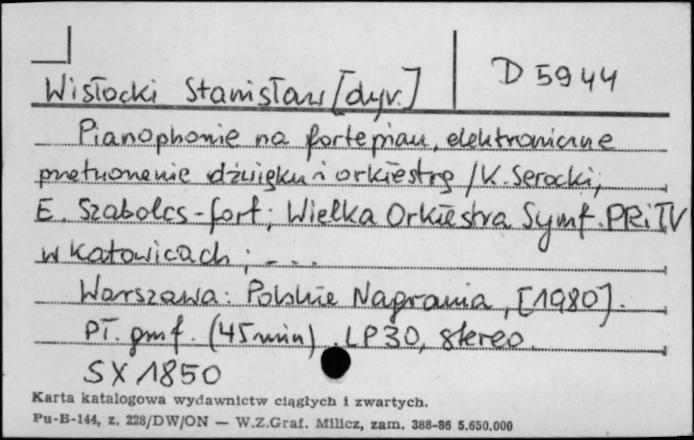 D 5944
Wisłocki Stanisław [dyr.]
Pianophonie na fortepian, elektroniczne
przetworzenie dźwięku i orkiestrę / K. Serocki;
E. Szabolcs-fort; Wielka Orkiestra Symf. PRiTV
w Katowicach; - . . .
Warszawa: Polskie Nagrania, [1980].
Pł. gmf. (45 min). LP30, stereo.
SX 1850
Karta katalogowa wydawnictw ciągłych i zwartych.
Pu-B-144, z. 228/DW/ON — W.Z.Graf. Milicz, zam. 388-86 5.650.000